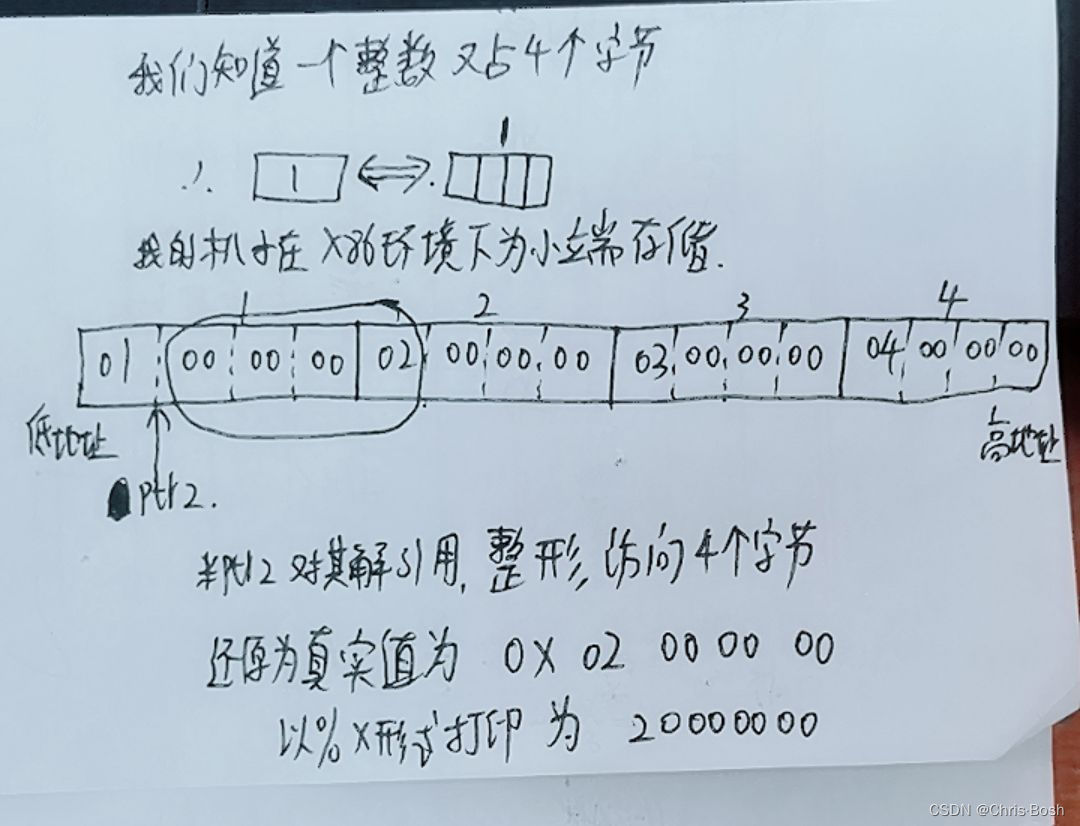 我们知道一个整数又占4个字节
1
∴ 1 ⟺
我的机子在X86环境下为小端存储.
1 2 3 4
01 00 00 00 02 00 00 00 03 00 00 00 04 00 00 00
低地址 高地址
ptr2.
*ptr2 对其解引用,整形,访问4个字节
还原为真实值为 0X 02 00 00 00
以%X形式打印为 20000000
CSDN @Chris·Bosh